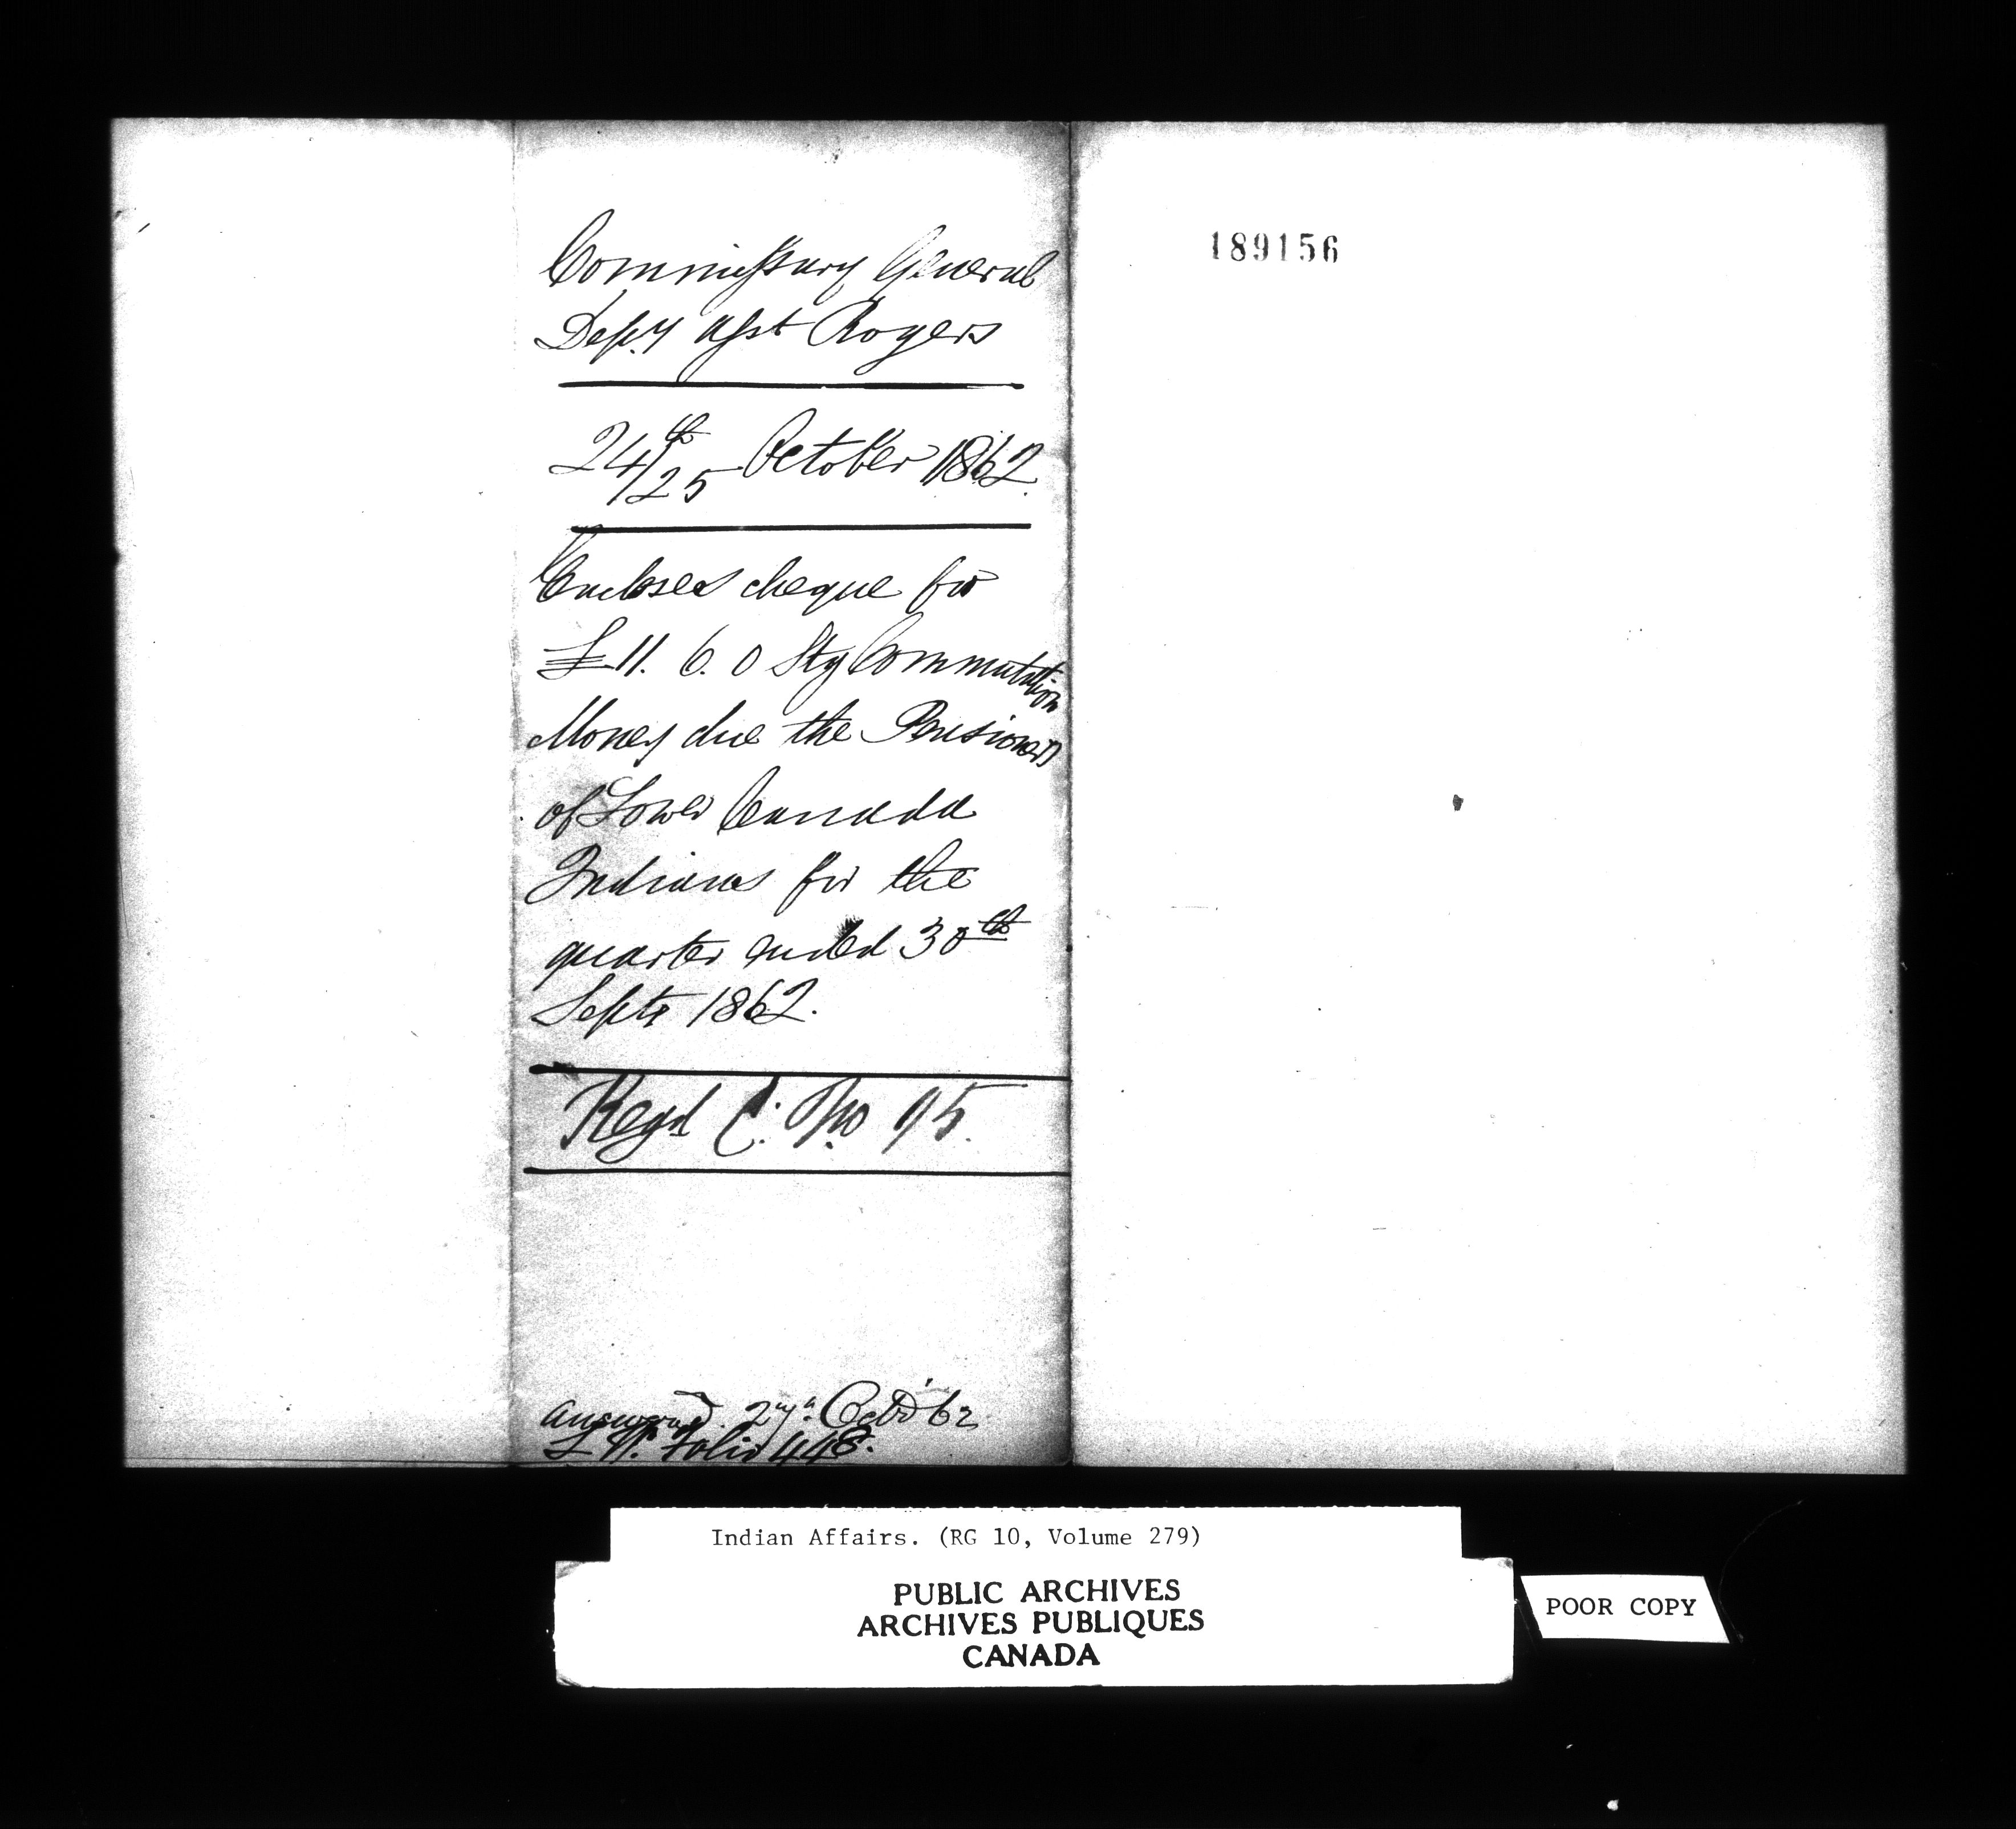 Commissary General
Depy Asst Rogers
24th/25 October 1862.
Encloses cheque for
£11. 6. 0 Stg Commutation
Money due the Pensioners
of Lower Canada
Indians for the
quarter ended 30th
Septr 1862.
Regd C. No 95.
Answered 27th Octr 62
L B. Folio 448.
189156
Indian Affairs. (RG 10, Volume 279)
PUBLIC ARCHIVES
ARCHIVES PUBLIQUES
CANADA
POOR COPY